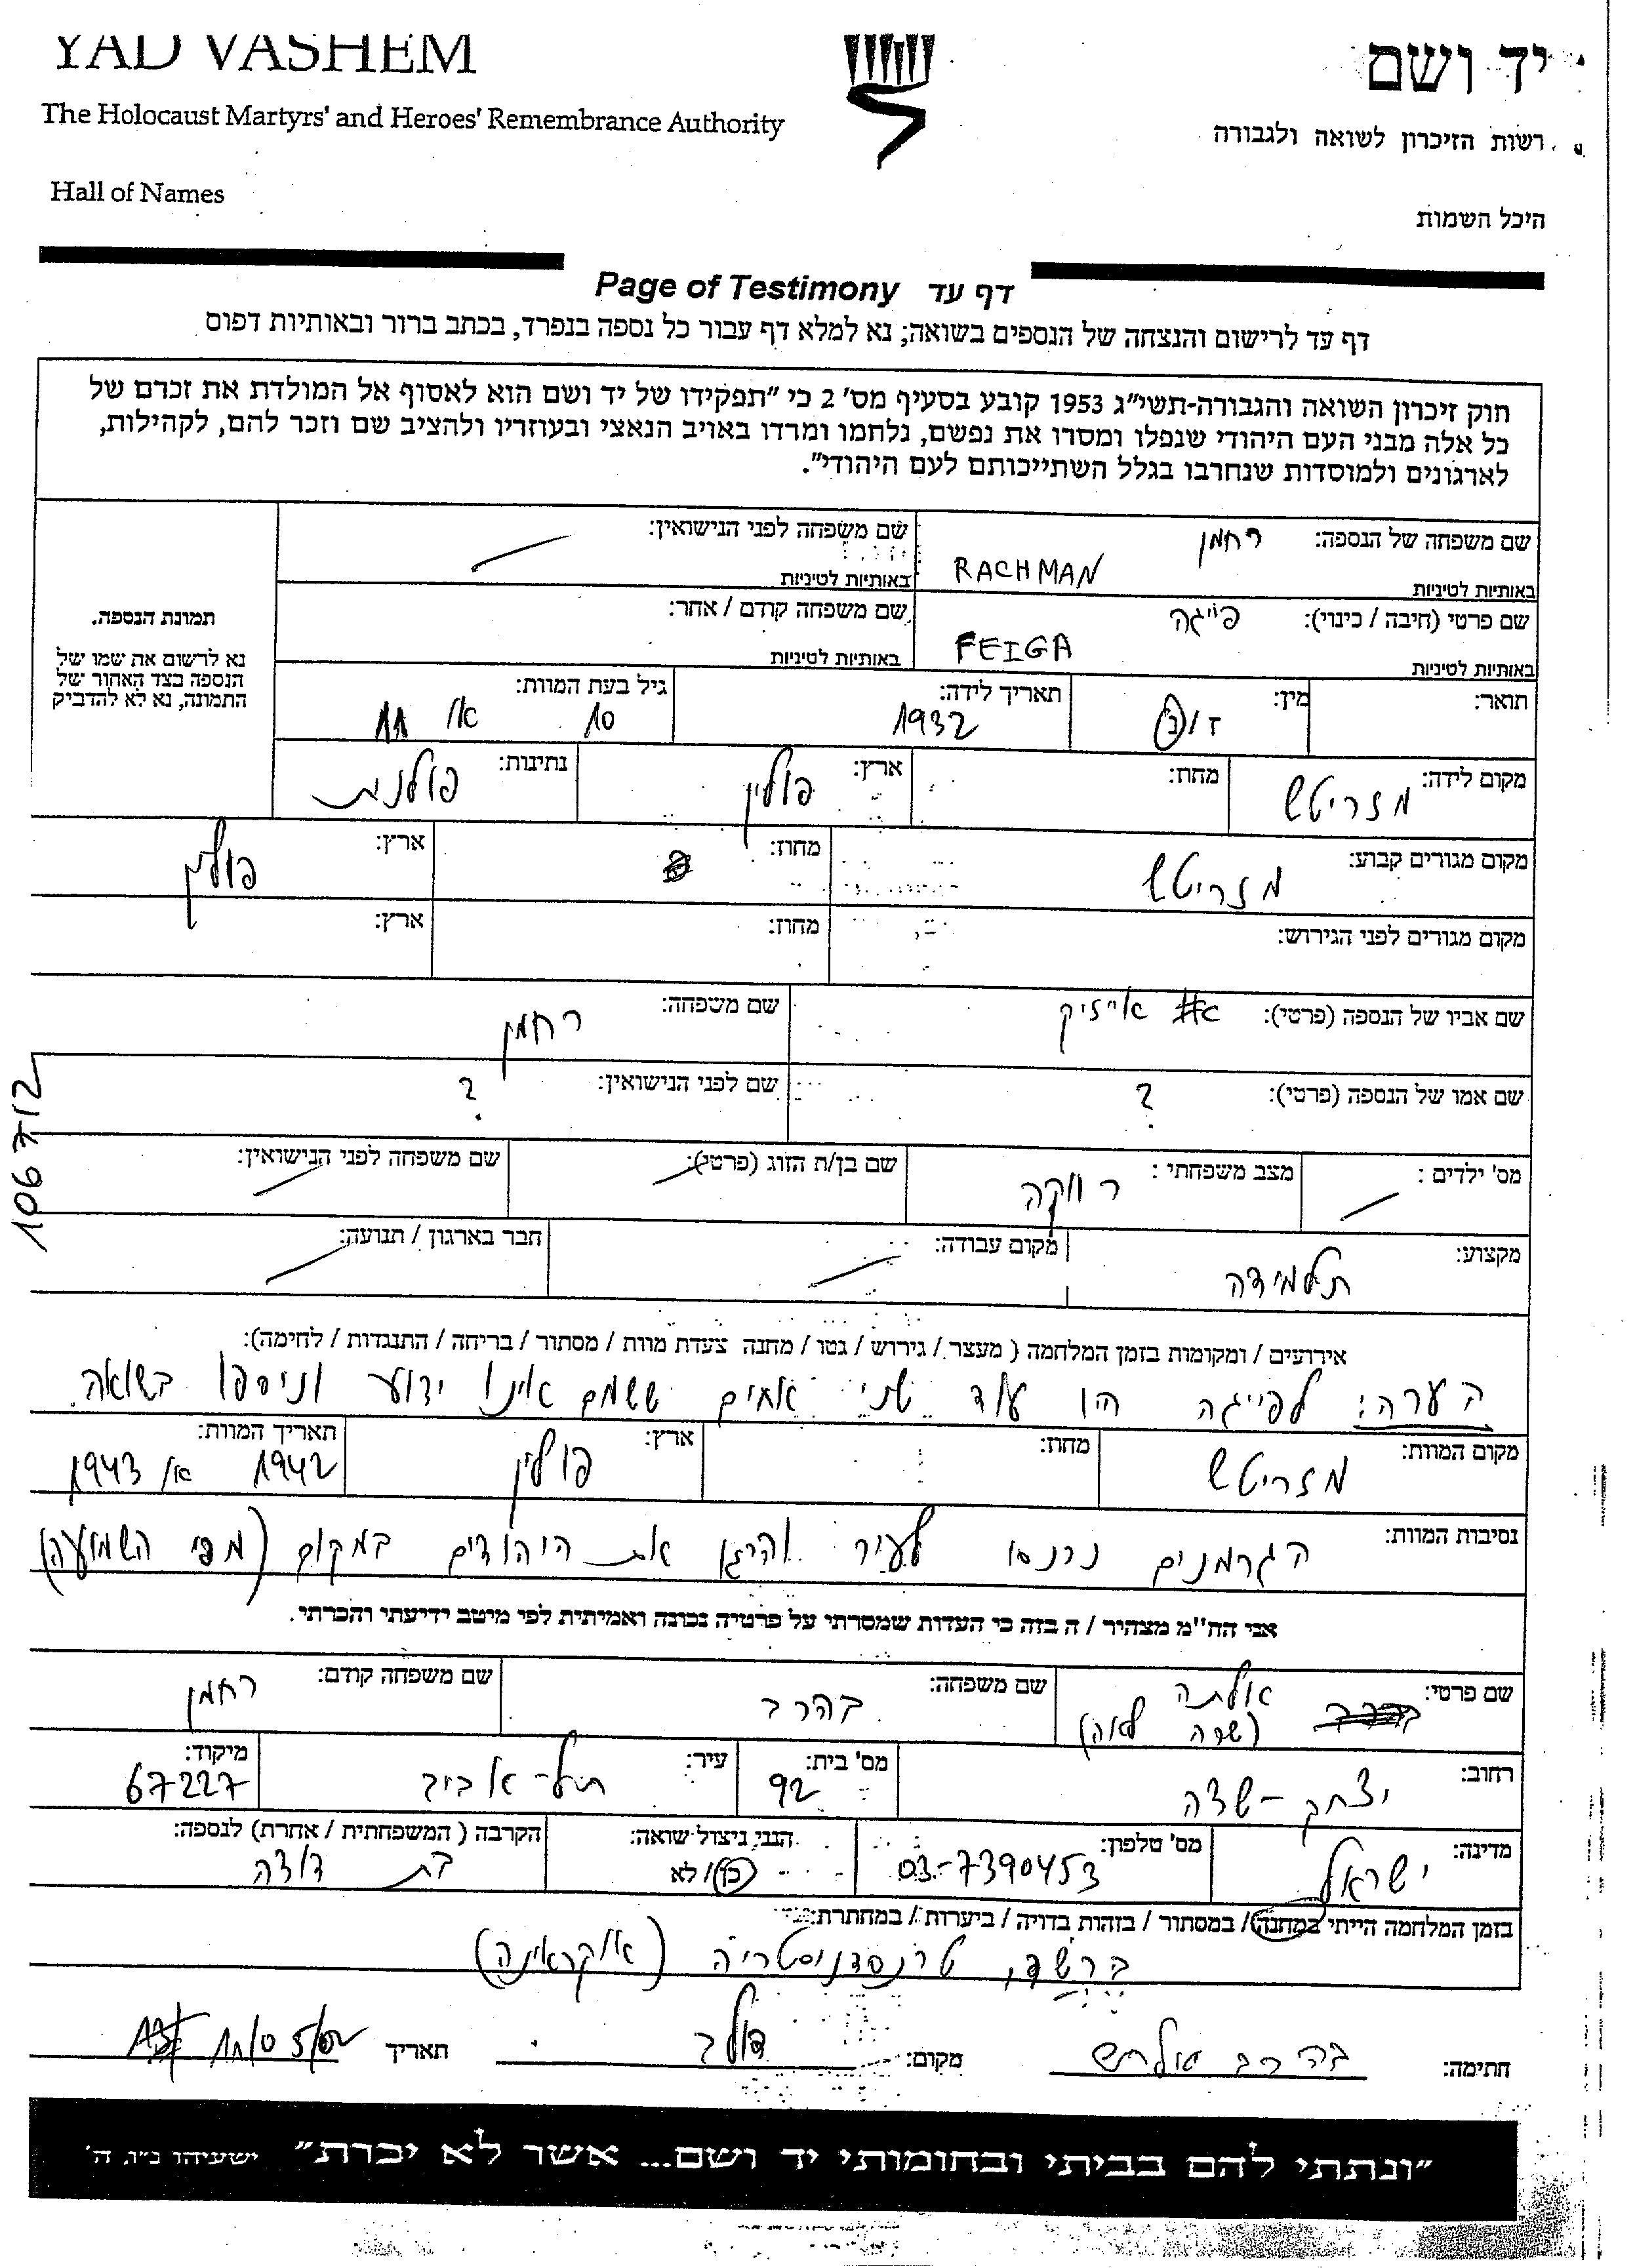 YAD VASHEM
יד ושם
The Holocaust Martyrs' and Heroes' Remembrance Authority
רשות הזיכרון לשואה ולגבורה
Hall of Names
היכל השמות
Page of Testimony דף עד
דף עד לרישום והנצחה של הנספים בשואה; נא למלא דף עבור כל נספה בנפרד, בכתב ברור ובאותיות דפוס
חוק זיכרון השואה והגבורה-תשי"ג 1953 קובע בסעיף מס' 2 כי "תפקידו של יד ושם הוא לאסוף אל המולדת את זכרם של
כל אלה מבני העם היהודי שנפלו ומסרו את נפשם, נלחמו ומרדו באויב הנאצי ובעוזריו ולהציב שם וזכר להם, לקהילות,
לארגונים ולמוסדות שנחרבו בגלל השתייכותם לעם היהודי".
שם משפחה של הנספה: רחמן שם משפחה לפני הנישואין:
באותיות לטיניות RACHMAN באותיות לטיניות
שם פרטי (חיבה / כינוי): פייגה שם משפחה קודם / אחר:
באותיות לטיניות FEIGA באותיות לטיניות
תמונת הנספה.
נא לרשום את שמו של
הנספה בצד האחור של
התמונה, נא לא להדביק
תואר: מין: ז / נ תאריך לידה: 1932 גיל בעת המוות: 10 או 11
מקום לידה: מזריטש מחוז: ארץ: פולין נתינות: פולנית
מקום מגורים קבוע: מזריטש מחוז: ארץ: פולין
מקום מגורים לפני הגירוש: מחוז: ארץ:
שם אביו של הנספה (פרטי): אייזיק שם משפחה: רחמן
שם אמו של הנספה (פרטי): ? שם לפני הנישואין: ?
106712
מס' ילדים : מצב משפחתי : רווקה שם בן/ת הזוג (פרטי): שם משפחה לפני הנישואין:
מקצוע: תלמידה מקום עבודה: חבר בארגון / תנועה:
אירועים / ומקומות בזמן המלחמה ( מעצר / גירוש / גטו / מחנה צעדת מוות / מסתור / בריחה / התנגדות / לחימה):
הערה: לפייגה היו עוד שני אחים ששמם אינו ידוע וניספו בשואה.
מקום המוות: מזריטש מחוז: ארץ: פולין תאריך המוות: 1942 או 1943
נסיבות המוות: הגרמנים נכנסו לעיר והרגו את היהודים במקום (מפי השמועה)
אני הח"מ מצהיר / ה בזה כי העדות שמסרתי על פרטיה נכונה ואמיתית לפי מיטב ידיעתי והכרתי.
שם פרטי: אולתה (שרה לאה) שם משפחה: בהרב שם משפחה קודם: רחמן
רחוב: יצחק-שדה מס' בית: 92 עיר: תל-אביב מיקוד: 67227
מדינה: ישראל מס' טלפון: 03-7390453 הנני ניצול שואה: כן / לא הקרבה ( המשפחתית / אחרת) לנספה: בת דודה
בזמן המלחמה הייתי במחנה / במסתור / בזהות בדויה / ביערות / במחתרת:
ברשד, טרנסדניסטריה (אוקראינה)
חתימה: בהרב מקום: תאריך 11/05/02
"ונתתי להם בביתי ובחומותי יד ושם... אשר לא יכרת" ישעיהו נ"ו, ה'